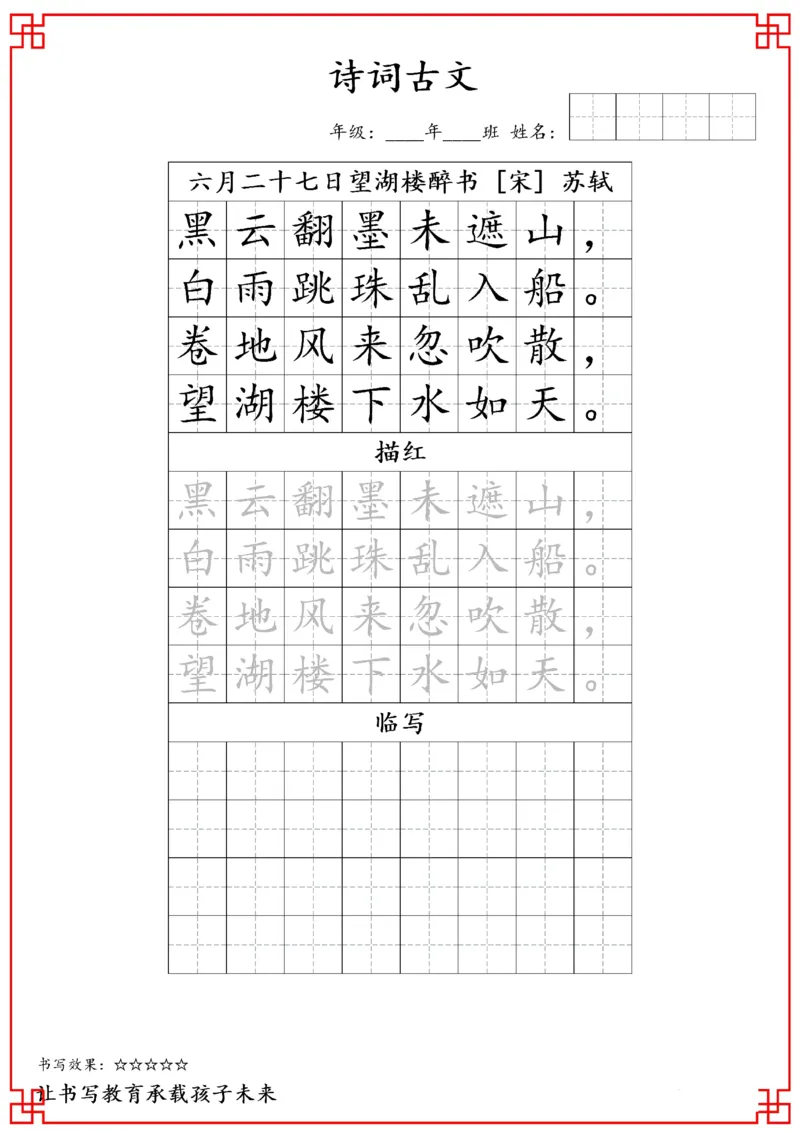 诗词古文
年级：____年____班 姓名：
六月二十七日望湖楼醉书［宋］苏轼
黑云翻墨未遮山，
白雨跳珠乱入船。
卷地风来忽吹散，
望湖楼下水如天。
描红
黑云翻墨未遮山，
白雨跳珠乱入船。
卷地风来忽吹散，
望湖楼下水如天。
临写
书写效果：☆☆☆☆☆
让书写教育承载孩子未来